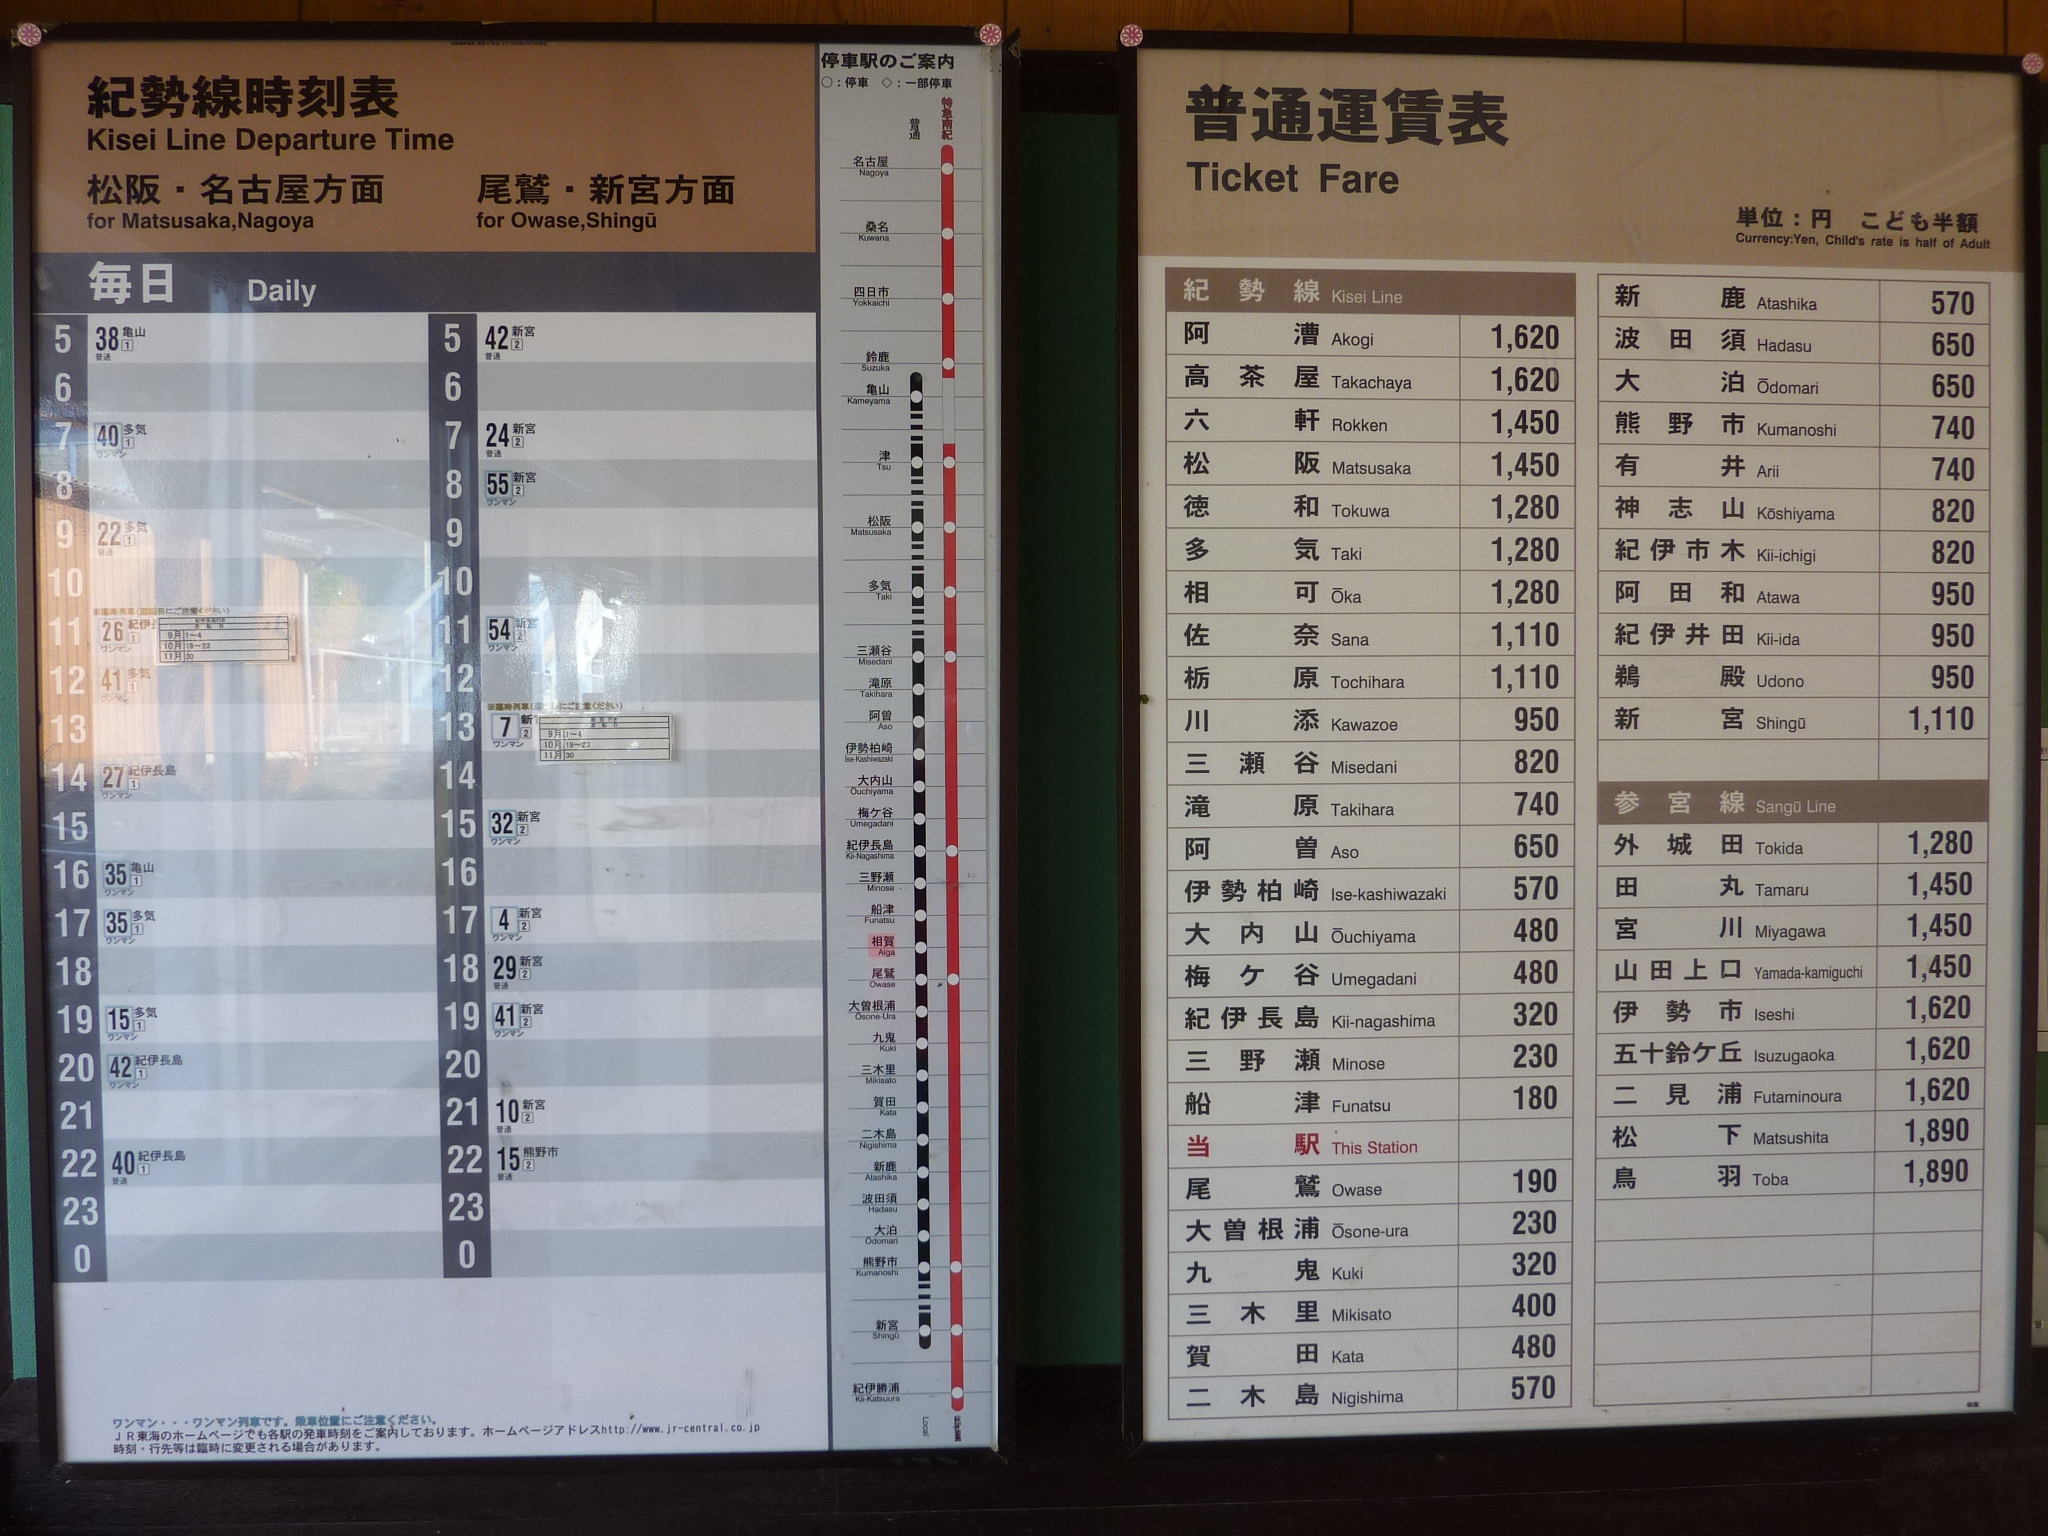 紀勢線時刻表
Kisei Line Departure Time
松阪・名古屋方面
for Matsusaka,Nagoya
尾鷲・新宮方面
for Owase,Shingū
毎日 Daily
5 38 亀山 1 普通
6
7 40 多気 1 ワンマン
8
9 22 多気 1 普通
10
※臨時列車(運転日にご注意ください)
11 26 紀伊 1 ワンマン
9月 1~4
10月 19~23
11月 30
12 41 多気 1 ワンマン
13
14 27 紀伊長島 1 ワンマン
15
16 35 亀山 1 ワンマン
17 35 多気 1 ワンマン
18
19 15 多気 1 ワンマン
20 42 紀伊長島 1 ワンマン
21
22 40 紀伊長島 1 普通
23
0
5 42 新宮 2 普通
6
7 24 新宮 2 普通
8 55 新宮 2 ワンマン
9
10
11 54 新宮 2 ワンマン
12
※臨時列車(運転日にご注意ください)
13 7 新 2 ワンマン
9月 1~4
10月 19~23
11月 30
14
15 32 新宮 2 ワンマン
16
17 4 新宮 2 ワンマン
18 29 新宮 2 普通
19 41 新宮 2 ワンマン
20
21 10 新宮 2 普通
22 15 熊野市 2 普通
23
0
ワンマン・・・ワンマン列車です。乗車位置にご注意ください。
JR東海のホームページでも各駅の発車時刻をご案内しております。ホームページアドレスhttp://www.jr-central.co.jp
時刻・行先等は臨時に変更される場合があります。
停車駅のご案内
○:停車 ◇:一部停車
普通 特急南紀
名古屋 Nagoya
桑名 Kuwana
四日市 Yokkaichi
鈴鹿 Suzuka
亀山 Kameyama
津 Tsu
松阪 Matsusaka
多気 Taki
三瀬谷 Misedani
滝原 Takihara
阿曽 Aso
伊勢柏崎 Ise-Kashiwazaki
大内山 Ōuchiyama
梅ケ谷 Umegadani
紀伊長島 Kii-Nagashima
三野瀬 Minose
船津 Funatsu
相賀 Aiga
尾鷲 Owase
大曽根浦 Ōsone-Ura
九鬼 Kuki
三木里 Mikisato
賀田 Kata
二木島 Nigishima
新鹿 Atashika
波田須 Hadasu
大泊 Ōdomari
熊野市 Kumanoshi
新宮 Shingū
紀伊勝浦 Kii-Katsuura
Local
普通運賃表
Ticket Fare
単位:円 こども半額
Currency:Yen, Child's rate is half of Adult
紀勢線 Kisei Line
阿漕 Akogi 1,620
高茶屋 Takachaya 1,620
六軒 Rokken 1,450
松阪 Matsusaka 1,450
徳和 Tokuwa 1,280
多気 Taki 1,280
相可 Ōka 1,280
佐奈 Sana 1,110
栃原 Tochihara 1,110
川添 Kawazoe 950
三瀬谷 Misedani 820
滝原 Takihara 740
阿曽 Aso 650
伊勢柏崎 Ise-kashiwazaki 570
大内山 Ōuchiyama 480
梅ケ谷 Umegadani 480
紀伊長島 Kii-nagashima 320
三野瀬 Minose 230
船津 Funatsu 180
当駅 This Station
尾鷲 Owase 190
大曽根浦 Ōsone-ura 230
九鬼 Kuki 320
三木里 Mikisato 400
賀田 Kata 480
二木島 Nigishima 570
新鹿 Atashika 570
波田須 Hadasu 650
大泊 Ōdomari 650
熊野市 Kumanoshi 740
有井 Arii 740
神志山 Kōshiyama 820
紀伊市木 Kii-ichigi 820
阿田和 Atawa 950
紀伊井田 Kii-ida 950
鵜殿 Udono 950
新宮 Shingū 1,110
参宮線 Sangū Line
外城田 Tokida 1,280
田丸 Tamaru 1,450
宮川 Miyagawa 1,450
山田上口 Yamada-kamiguchi 1,450
伊勢市 Iseshi 1,620
五十鈴ケ丘 Isuzugaoka 1,620
二見浦 Futaminoura 1,620
松下 Matsushita 1,890
鳥羽 Toba 1,890